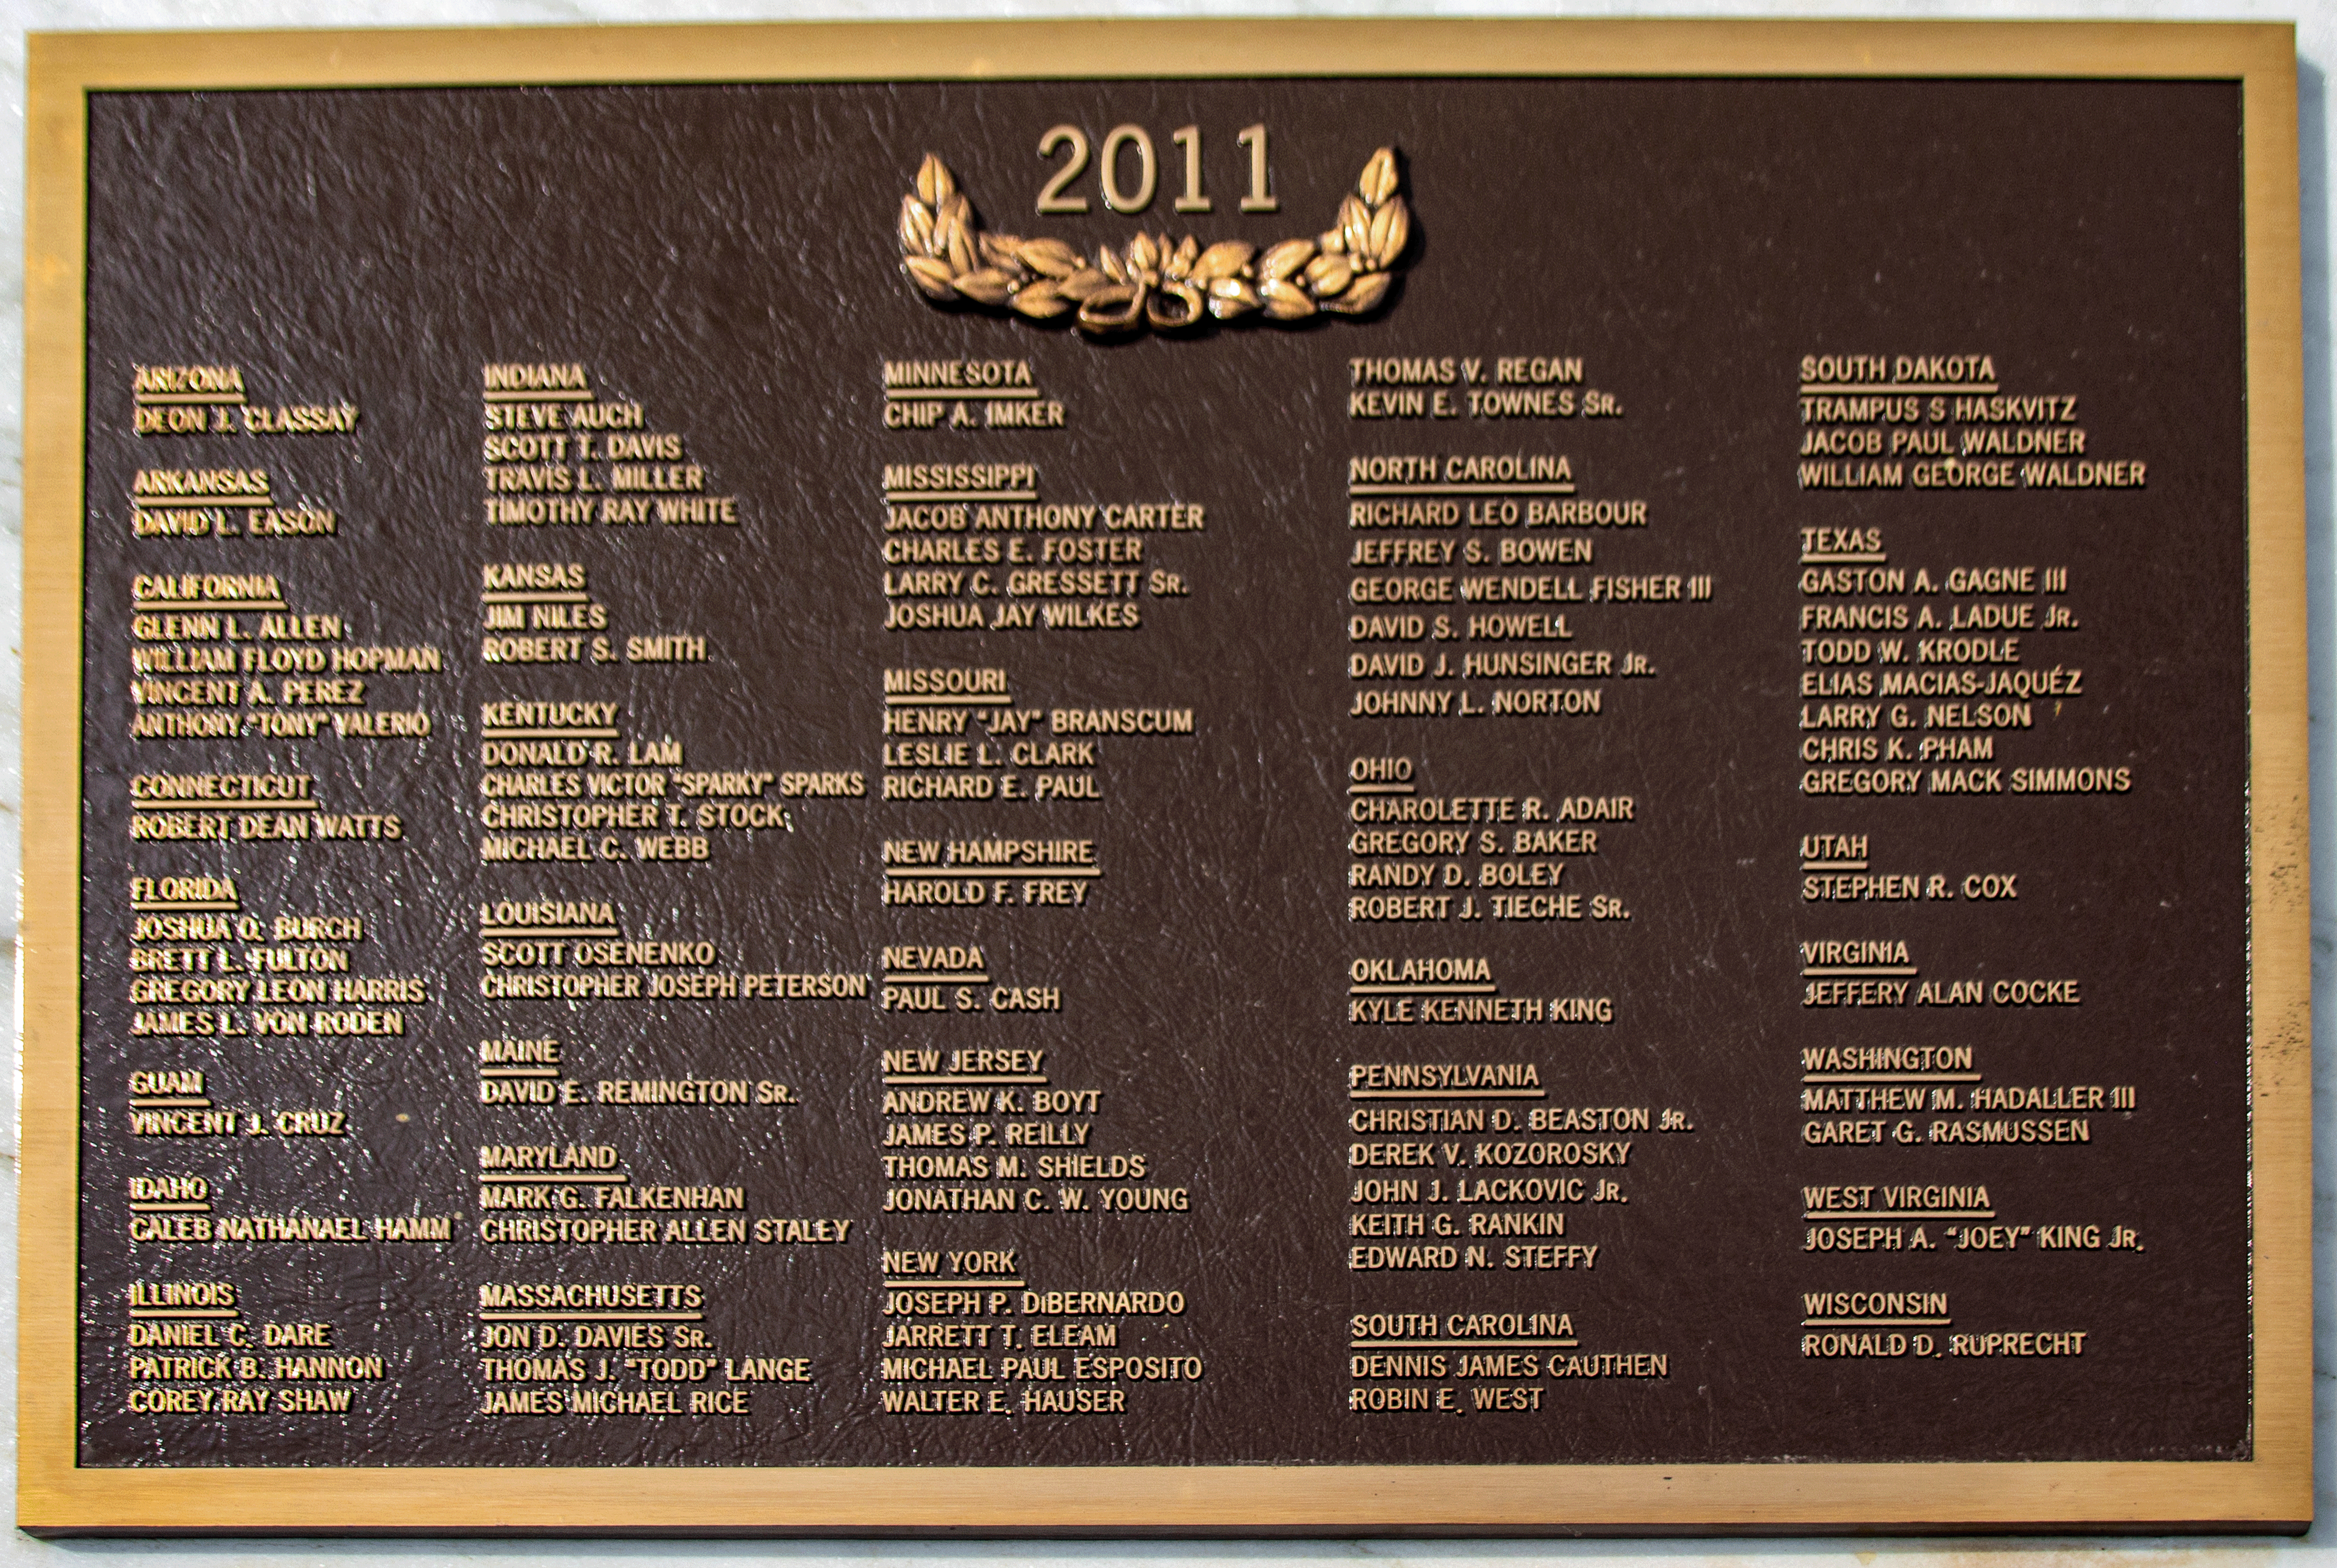 2011
ARIZONA
DEON J. CLASSAY
ARKANSAS
DAVID L. EASON
CALIFORNIA
GLENN L. ALLEN
WILLIAM FLOYD HOPMAN
VINCENT A. PEREZ
ANTHONY "TONY" VALERIO
CONNECTICUT
ROBERT DEAN WATTS
FLORIDA
JOSHUA O. BURCH
BRETT L. FULTON
GREGORY LEON HARRIS
JAMES L. VON RODEN
GUAM
VINCENT J. CRUZ
IDAHO
CALEB NATHANAEL HAMM
ILLINOIS
DANIEL C. DARE
PATRICK B. HANNON
COREY RAY SHAW
INDIANA
STEVE AUCH
SCOTT T. DAVIS
TRAVIS L. MILLER
TIMOTHY RAY WHITE
KANSAS
JIM NILES
ROBERT S. SMITH
KENTUCKY
DONALD R. LAM
CHARLES VICTOR "SPARKY" SPARKS
CHRISTOPHER T. STOCK
MICHAEL C. WEBB
LOUISIANA
SCOTT OSENENKO
CHRISTOPHER JOSEPH PETERSON
MAINE
DAVID E. REMINGTON SR.
MARYLAND
MARK G. FALKENHAN
CHRISTOPHER ALLEN STALEY
MASSACHUSETTS
JON D. DAVIES SR.
THOMAS J. "TODD" LANGE
JAMES MICHAEL RICE
MINNESOTA
CHIP A. IMKER
MISSISSIPPI
JACOB ANTHONY CARTER
CHARLES E. FOSTER
LARRY C. GRESSETT SR.
JOSHUA JAY WILKES
MISSOURI
HENRY "JAY" BRANSCUM
LESLIE L. CLARK
RICHARD E. PAUL
NEW HAMPSHIRE
HAROLD F. FREY
NEVADA
PAUL S. CASH
NEW JERSEY
ANDREW K. BOYT
JAMES P. REILLY
THOMAS M. SHIELDS
JONATHAN C. W. YOUNG
NEW YORK
JOSEPH P. DiBERNARDO
JARRETT T. ELEAM
MICHAEL PAUL ESPOSITO
WALTER E. HAUSER
THOMAS V. REGAN
KEVIN E. TOWNES SR.
NORTH CAROLINA
RICHARD LEO BARBOUR
JEFFREY S. BOWEN
GEORGE WENDELL FISHER III
DAVID S. HOWELL
DAVID J. HUNSINGER JR.
JOHNNY L. NORTON
OHIO
CHAROLETTE R. ADAIR
GREGORY S. BAKER
RANDY D. BOLEY
ROBERT J. TIECHE SR.
OKLAHOMA
KYLE KENNETH KING
PENNSYLVANIA
CHRISTIAN D. BEASTON JR.
DEREK V. KOZOROSKY
JOHN J. LACKOVIC JR.
KEITH G. RANKIN
EDWARD N. STEFFY
SOUTH CAROLINA
DENNIS JAMES CAUTHEN
ROBIN E. WEST
SOUTH DAKOTA
TRAMPUS S HASKVITZ
JACOB PAUL WALDNER
WILLIAM GEORGE WALDNER
TEXAS
GASTON A. GAGNE III
FRANCIS A. LADUE JR.
TODD W. KRODLE
ELIAS MACIAS-JAQUÉZ
LARRY G. NELSON
CHRIS K. PHAM
GREGORY MACK SIMMONS
UTAH
STEPHEN R. COX
VIRGINIA
JEFFERY ALAN COCKE
WASHINGTON
MATTHEW M. HADALLER III
GARET G. RASMUSSEN
WEST VIRGINIA
JOSEPH A. "JOEY" KING JR.
WISCONSIN
RONALD D. RUPRECHT